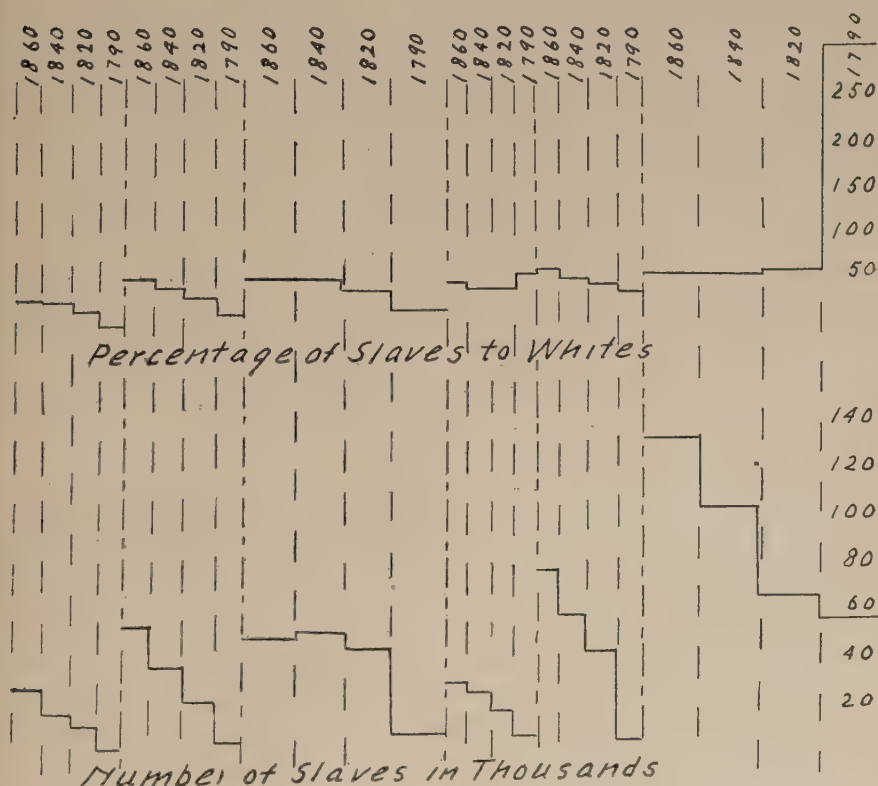 1860 1840 1820 1790 1860 1840 1820 1790 1860 1840 1820 1790 1860 1840 1820 1790 1860 1840 1820 1790 1860 1840 1820 1790
250
200
150
100
50
Percentage of Slaves to Whites
140
120
100
80
60
40
20
Number of Slaves in Thousands